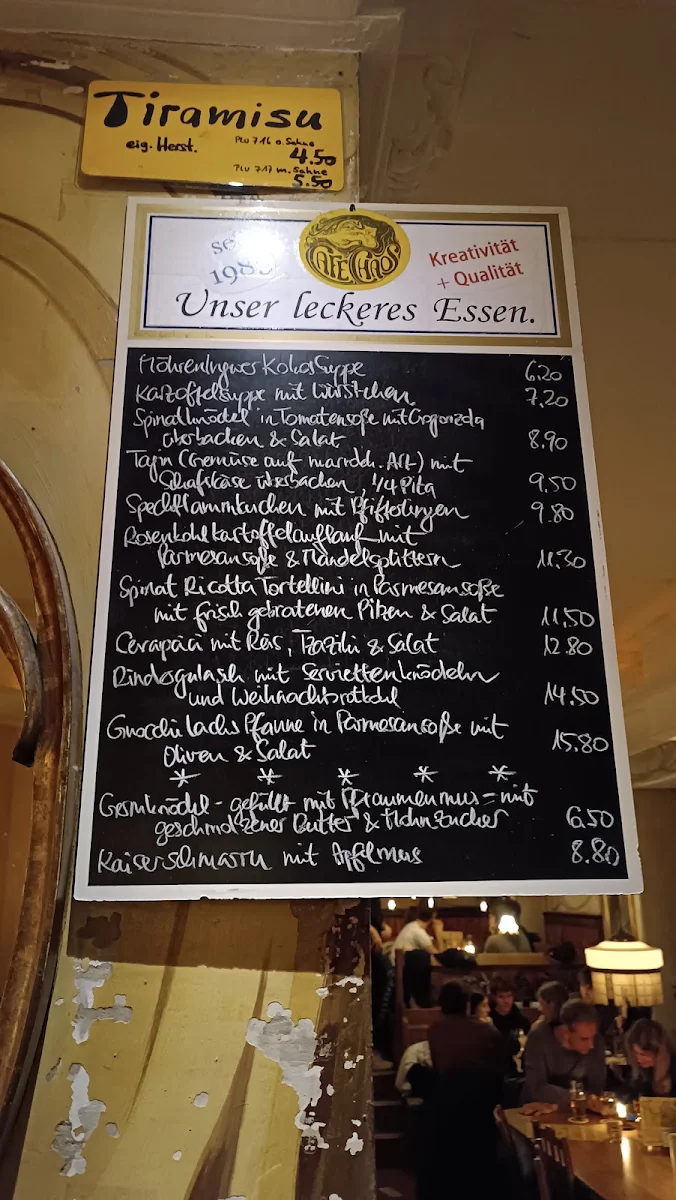 Tiramisu
eig. Herst.
PLU 716 o. Sahne
4.50
PLU 717 m. Sahne
5.50
CAFE CHAOS
Kreativität
+ Qualität
Unser leckeres Essen.
MöhrenIngwerKokosSuppe 6.20
Kartoffelsuppe mit Würstchen 7.20
Spinatknödel in Tomatensoße mit Gorgonzola
überbacken & Salat 8.90
Tajin (Gemüse auf marrokk. Art) mit
Schafskäse überbacken, 1/4 Pita 9.50
Speckflammkuchen mit Pfifferlingen 9.80
Rosenkohlkartoffelauflauf mit
Parmesansoße & Mandelsplittern 11.30
Spinat Ricotta Tortellini in Parmesansoße
mit frisch gebratenen Pilzen & Salat 11,50
Cevapcici mit Reis, Tzaziki & Salat 12.80
Rindergulasch mit Serviettenknödeln
und Weihnachtsrotkohl 14.50
Gnocchi Lachs Pfanne in Parmesansoße mit
Oliven & Salat 15.80
* * * * *
Germknödel - gefüllt mit Pflaumenmus - mit
geschmolzener Butter & Mohnzucker 6.50
Kaiserschmarrn mit Apfelmus 8.80